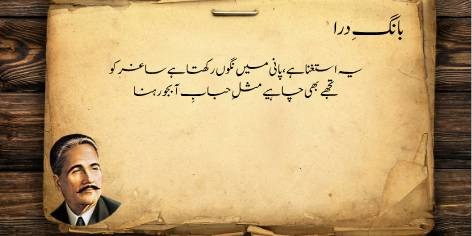 بانگِ درا
یہ استغنا ہے، پانی میں نگوں رکھتا ہے ساغر کو
تجھے بھی چاہیے مثلِ حبابِ آبجو رہنا